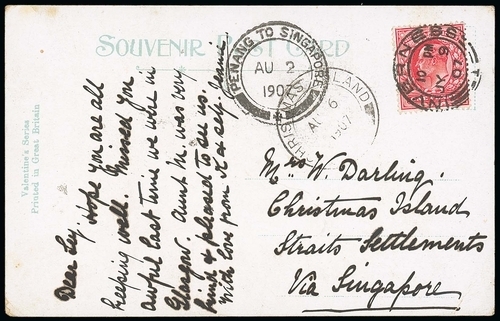 SOUVENIR POST CARD
Valentine's Series
Printed in Great Britain
PENANG TO SINGAPORE
AU 2
1907
CHRISTMAS ISLAND
AU 6
1907
INVERNESS
Dear Lucy, Hope you are all
keeping well. Missed you
awful last time we were in
Glasgow. Aunt M. was very
kind & pleased to see us.
With love from
Mrs. W. Darling.
Christmas Island
Straits Settlements
Via Singapore